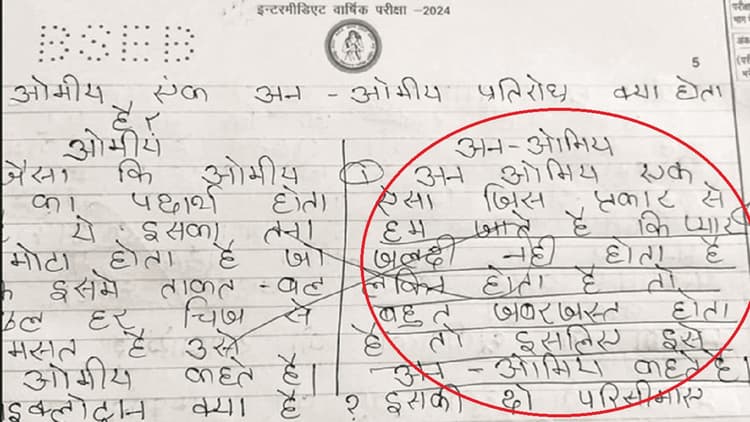 इन्टरमीडिएट वार्षिक परीक्षा -2024
BSEB
5
ओमीय एंक अन - ओमीय प्रतिरोध क्या होता
है ?
ओमीय
जैसा कि ओमीय
का पदार्थ होता
ये इसका तना
मोटा होता है जो
इसमे ताकत-बल
हर चिज से
मसत है उसे
ओमीय कहते है।
क्या है ?
अन-ओमिय
① अन ओमिय एक
ऐसा जिस प्रकार से
हम जाते है कि प्यार
जलदी नही होता है
लेकिन होता है तो
बहुत जबरजस्त होता
है तो इसलिए इसे
अन - ओमिय कहते है।
इसकी दो परिसीमाए